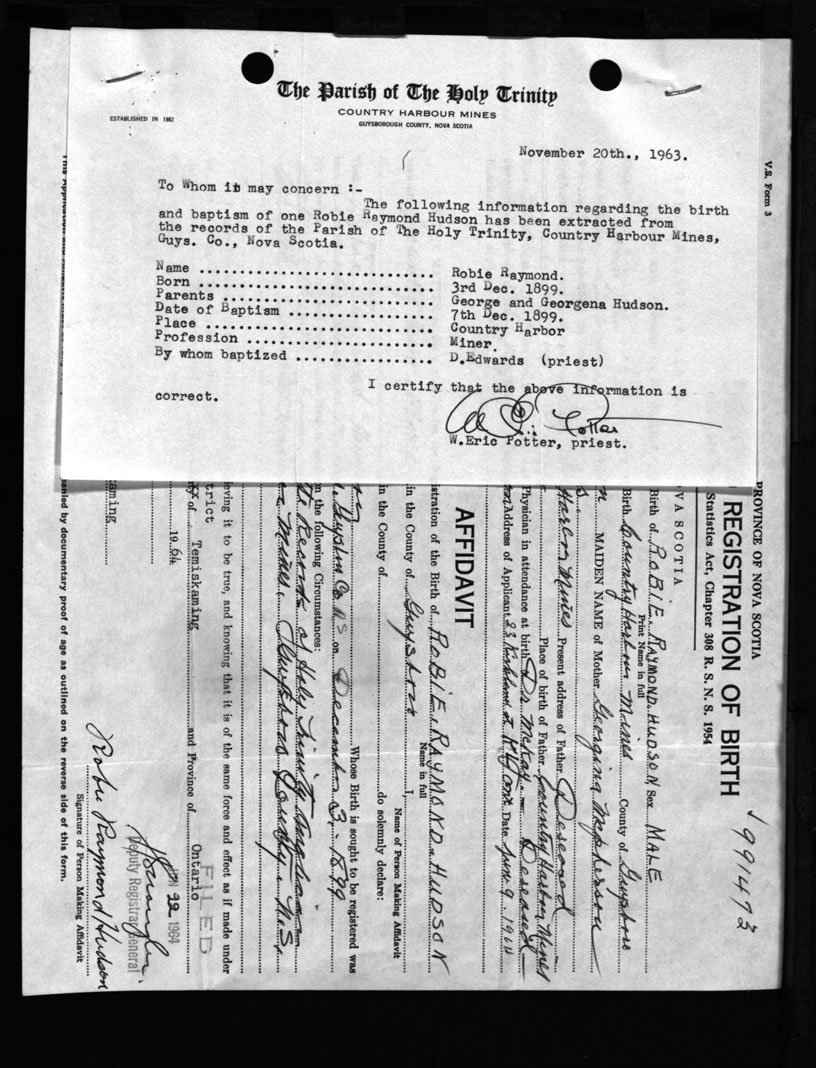 The Parish of The Holy Trinity
COUNTRY HARBOUR MINES
GUYSBOROUGH COUNTY, NOVA SCOTIA
ESTABLISHED IN 1862
November 20th., 1963.
To Whom it may concern :-
The following information regarding the birth
and baptism of one Robie Raymond Hudson has been extracted from
the records of the Parish of The Holy Trinity, Country Harbour Mines,
Guys. Co., Nova Scotia.
Name .............................. Robie Raymond.
Born .............................. 3rd Dec. 1899.
Parents ........................... George and Georgena Hudson.
Date of Baptism .................. 7th Dec. 1899.
Place ............................. Country Harbor
Profession ........................ Miner.
By whom baptized ................. D.Edwards (priest)
I certify that the above information is
correct.
W.Eric Potter, priest.
V.S. Form 3
PROVINCE OF NOVA SCOTIA
REGISTRATION OF BIRTH
991473
Statistics Act, Chapter 308 R. S. N. S. 1954
OVA SCOTIA
Birth of ROBIE. RAYMOND. HUDSON Sex MALE
Print Name in full
Birth Country Harbour Mines County of Guysboro
MAIDEN NAME of Mother Georgina McPherson
Harbor Mines Present address of Father Deseased
Place of birth of Father Country Harbor Mines
Physician in attendance at birth Dr McKay - Deseased
Address of Applicant 23 Date Jan 9 1964
AFFIDAVIT
istration of the Birth of ROBIE. RAYMOND. HUDSON
Name in full
in the County of Guysboro I,
Name of Person Making Affidavit
in the County of do solemnly declare:
Whose Birth is sought to be registered was
Co NS on December 3, 1899
on the following Circumstances:
the Records of Holy Trinity
Mines, Guysboro County. N.S.
ieving it to be true, and knowing that it is of the same force and effect as if made under
trict
of Temiskaming and Province of Ontario
FILED
1964
JAN 22 1964
Deputy Registrar General
Robie Raymond Hudson
Signature of Person Making Affidavit
kaming
anied by documentary proof of age as outlined on the reverse side of this form.